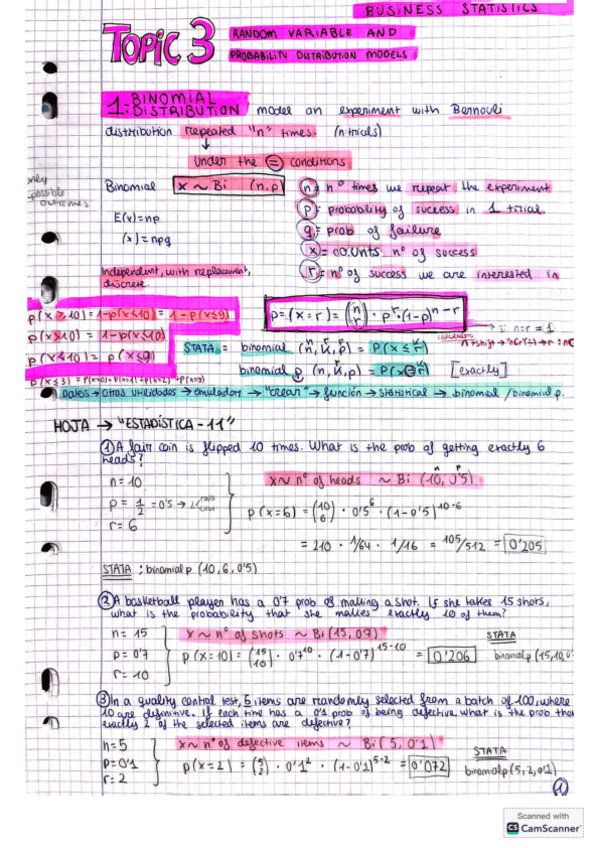 BUSINESS STATISTICS
TOPIC 3 RANDOM VARIABLE AND
PROBABILITY DISTRIBUTION MODELS
1. BINOMIAL DISTRIBUTION model an experiment with Bernouli
distribution repeated "n" times. (n trials)
↓
Under the = conditions
only possible outcomes
Binomial X ~ Bi (n, p)
E(x)=np
(x)=npq
Independent, with replacement,
discrete.
n = nº times we repeat the experiment
p = probability of success in 1 trial
q = prob of failure
x = counts nº of success
r = nº of success we are interested in
p(x≥10) = 1-p(x<10) = 1-p(x≤9)
p(x>10) = 1-p(x≤10)
p(x<10) = p(x≤9)
p(x≤3) = p(x=0)+p(x=1)+p(x=2)+p(x=3)
P=(x=r) = (n r) · p^r · (1-p)^n-r
n=r = 1
STATA = binomial (n, K, p) = P(x≤r)
binomial p (n, K, p) = P(x=r) [exactly]
Datos → otras utilidades → emuladores → "crear" → función → statistical → binomial / binomial p.
HOJA → "ESTADÍSTICA - 11"
① A fair coin is flipped 10 times. What is the prob of getting exactly 6
heads?
n = 10
p = 1/2 = 0'5 → 2
r = 6
x ~ nº of heads ~ Bi (10, 0'5)
p(x=6) = (10 6) · 0'5^6 · (1-0'5)^10-6
= 210 · 1/64 · 1/16 = 105/512 = 0'205
STATA : binomialp (10, 6, 0'5)
② A basketball player has a 0'7 prob of making a shot. If she takes 15 shots,
what is the probability that she makes exactly 10 of them?
n = 15
p = 0'7
r = 10
x ~ nº of shots ~ Bi (15, 0'7)
p(x=10) = (15 10) · 0'7^10 · (1-0'7)^15-10 = 0'206
STATA
binomialp (15, 10, 0
③ In a quality control test, 5 items are randomly selected from a batch of 100, where
10 are definitive. If each time has a 0'1 prob of being defective. what is the prob that
exactly 2 of the selected items are defective?
n = 5
p = 0'1
r = 2
x ~ nº of defective items ~ Bi (5, 0'1)
p(x=2) = (5 2) · 0'1^2 · (1-0'1)^5-2 = 0'072
STATA
binomialp (5, 2, 0'1)
①
Scanned with
CS CamScanner